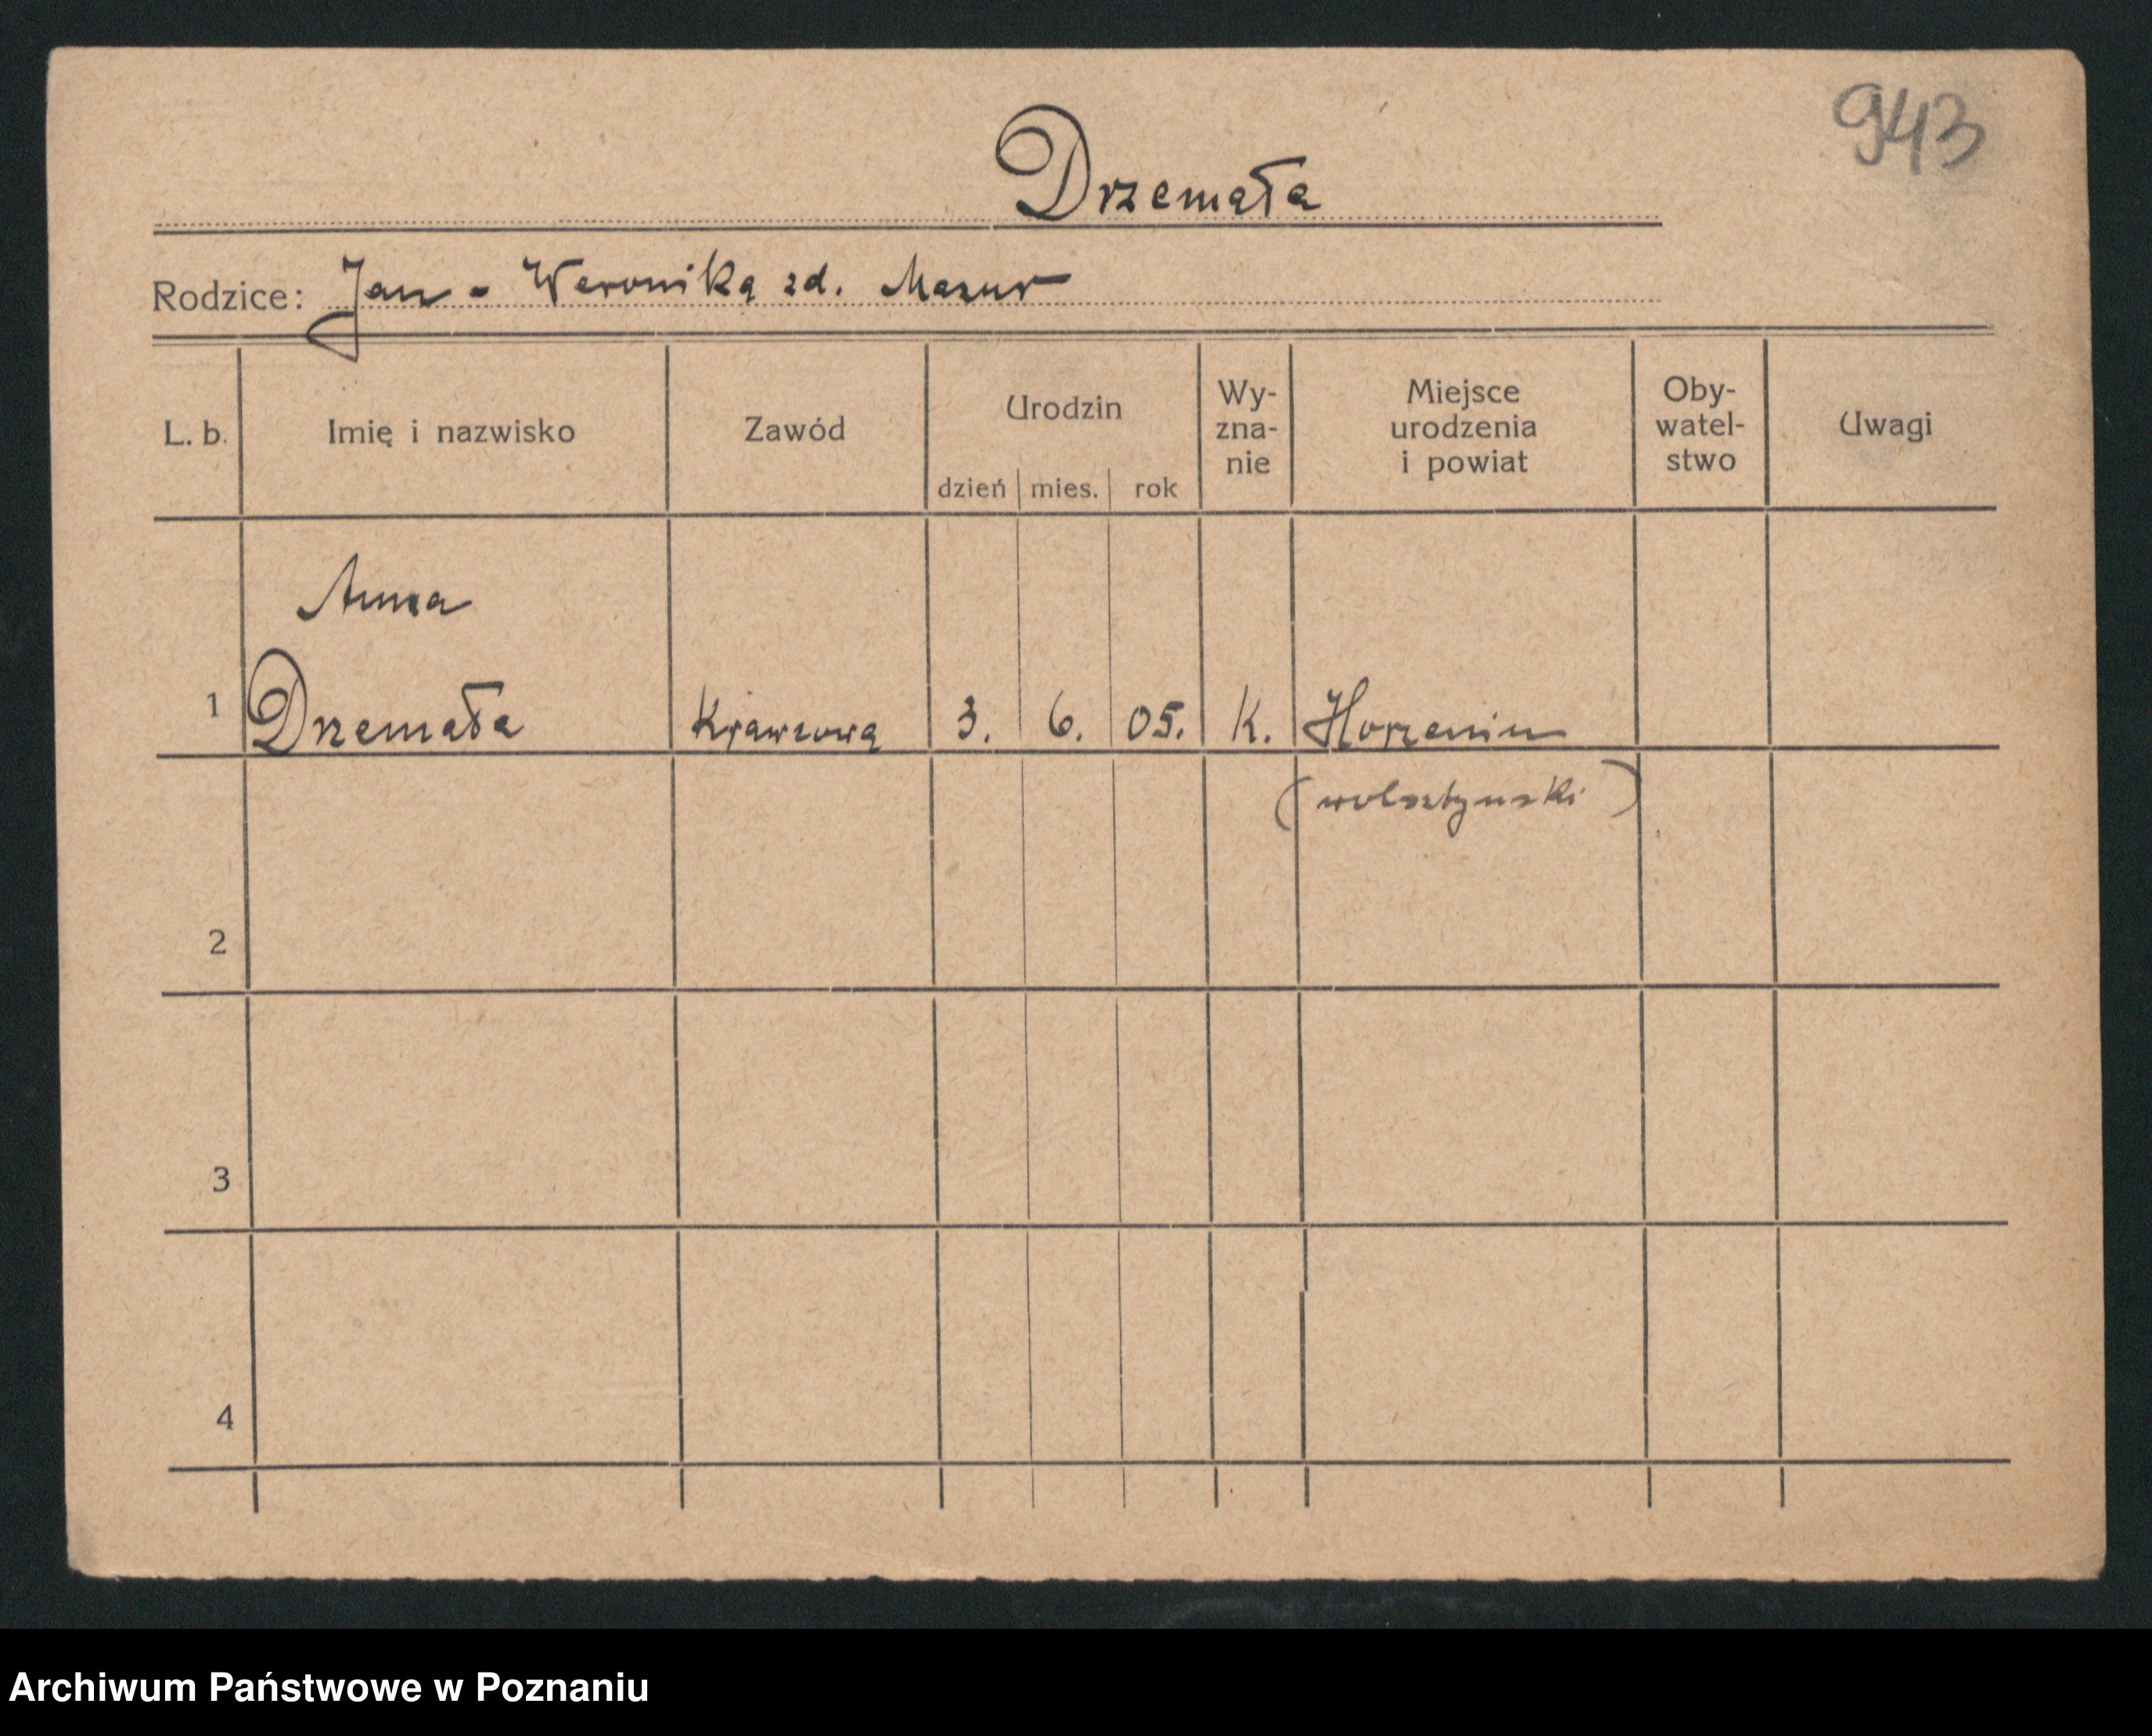 943
Drzemała
Rodzice: Jan - Weronika zd. Mazur
L. b.
Imię i nazwisko
Zawód
Urodzin
dzień mies. rok
Wy-
zna-
nie
Miejsce
urodzenia
i powiat
Oby-
watel-
stwo
Uwagi
Anna
1 Drzemała Krawcowa 3. 6. 05. K.
(wolsztynski)
2
3
4
Archiwum Państwowe w Poznaniu